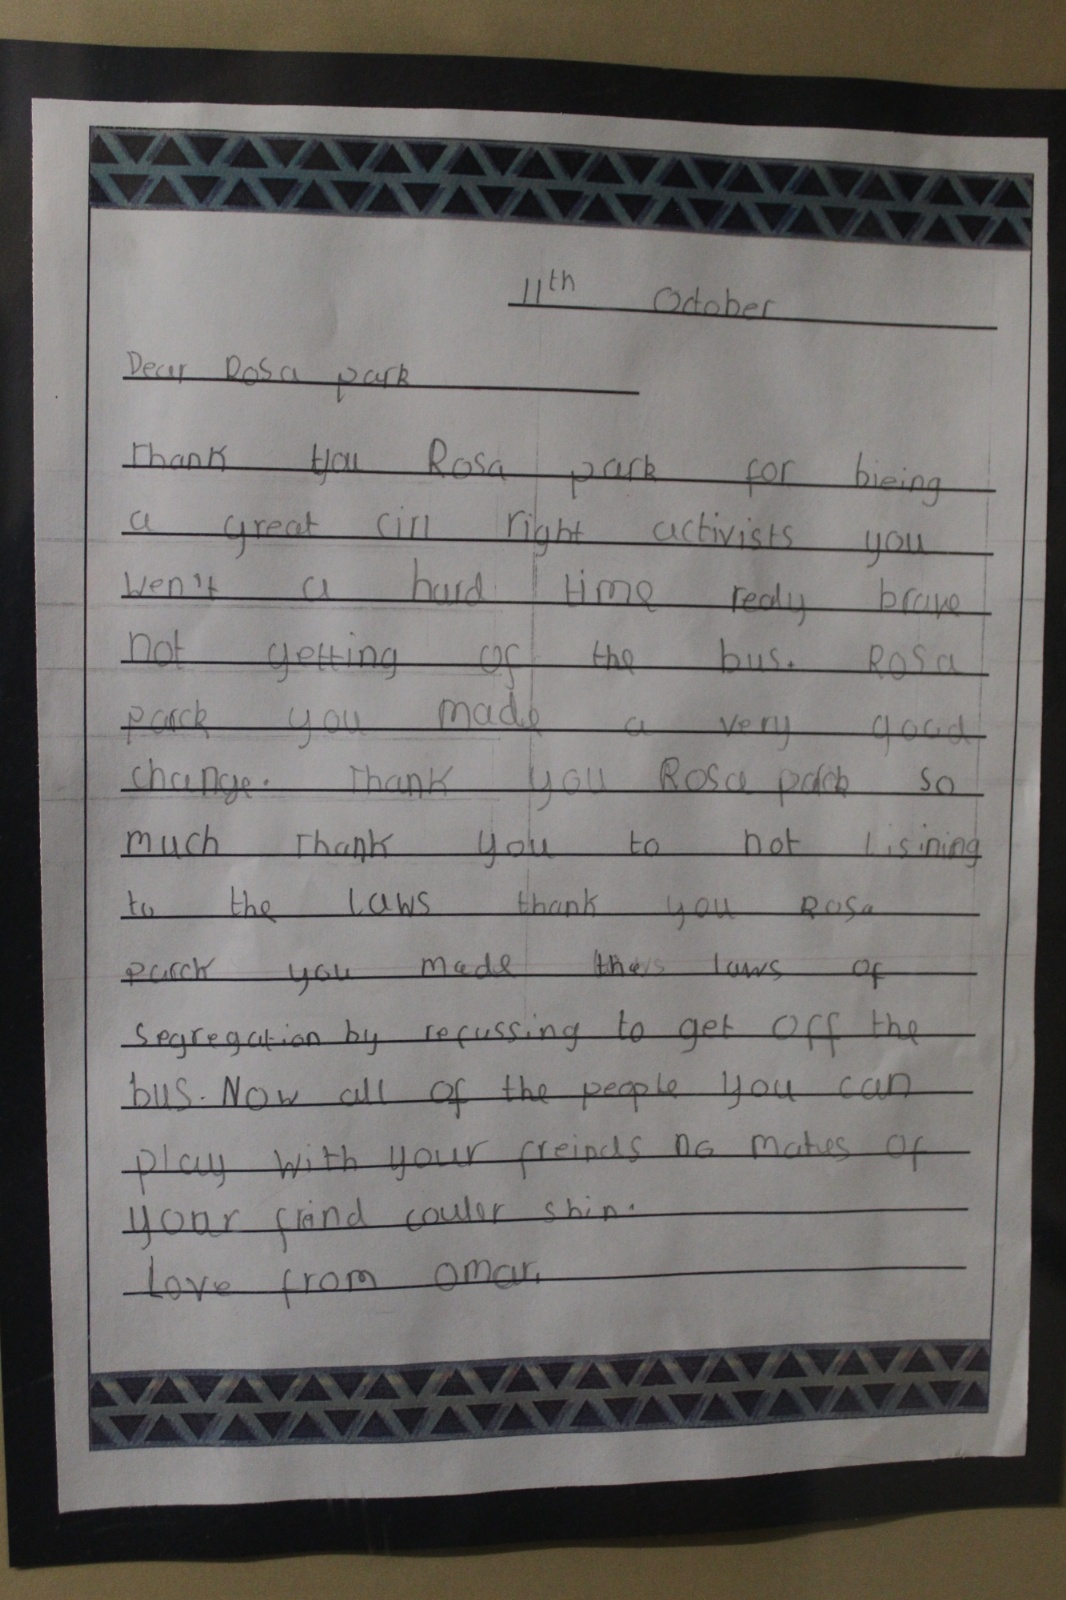 11th October
Dear Rosa park
Thank you Rosa park for bieing
a great cirl right activists you
Wen't a hard time realy brave
not getting of the bus. Rosa
parck you made a very good
change. Thank you Rosa parck so
much Thank you to not Lisining
to the Laws thank you Rosa
parck you made the laws of
segregation by refussing to get off the
bus. Now all of the people you can
play with your freinds no mates of
your frind couler shin.
Love from omar.